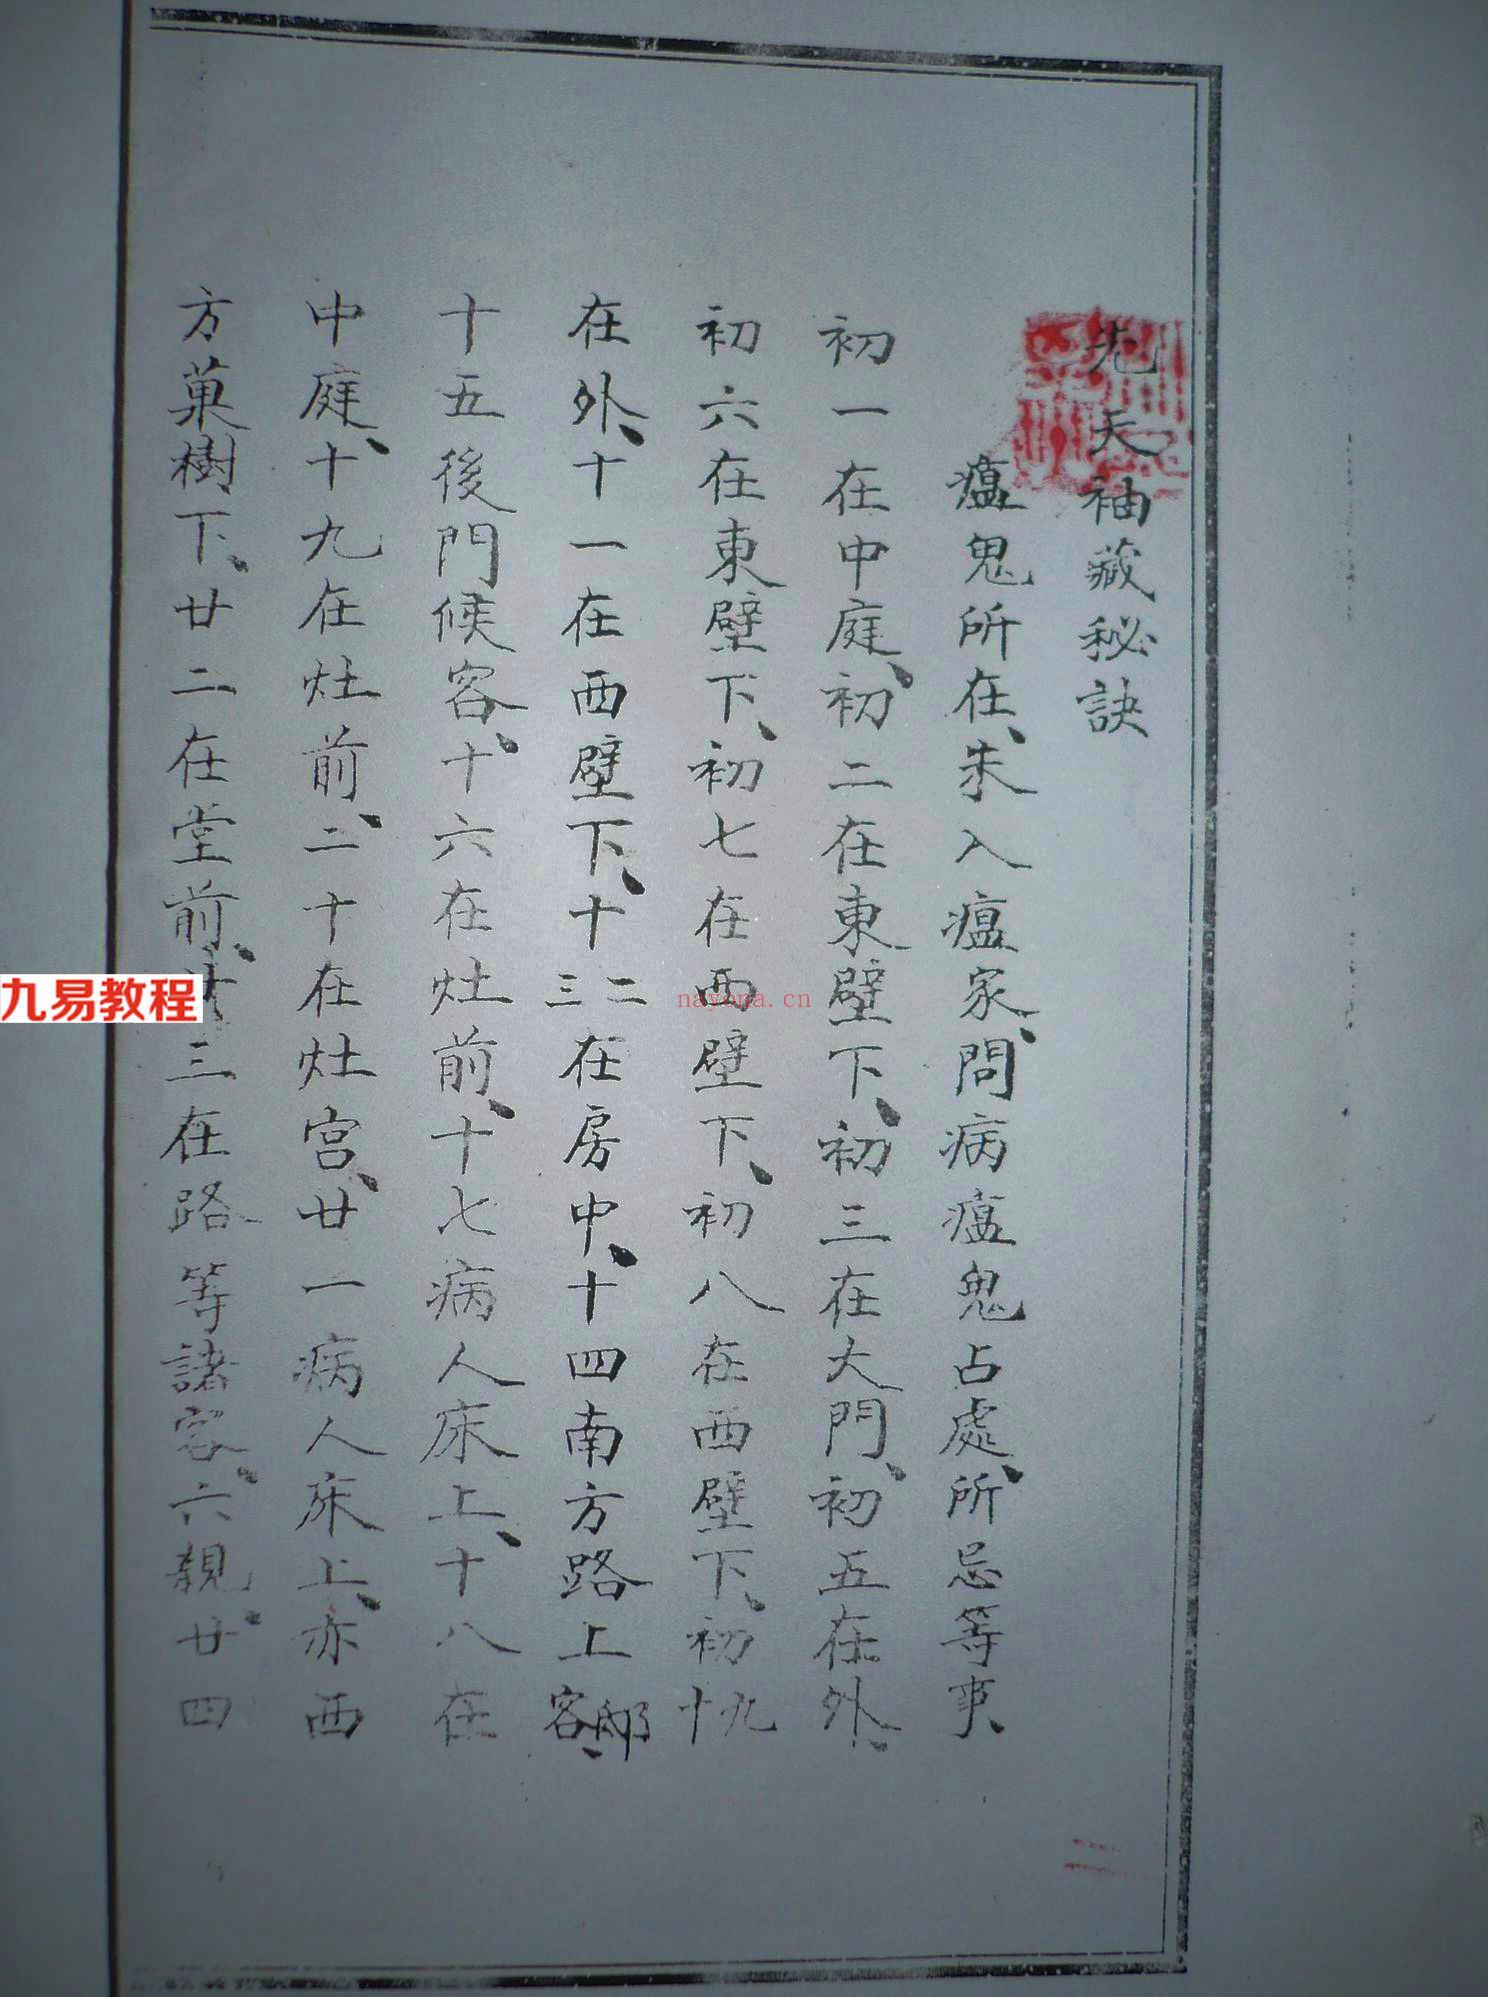 先天袖藏秘訣
瘟鬼所在、未入瘟家、問病瘟鬼占處、所忌等事、
初一在中庭、初二在東壁下、初三在大門、初五在外、
初六在東壁下、初七在西壁下、初八在西壁下、初九十
在外、十一在西壁下、十二三在房中、十四南方路上邸客、
十五後門候客、十六在灶前、十七病人床上、十八在
中庭、十九在灶前、二十在灶宫、廿一病人床上、亦西
方菓樹下、廿二在堂前、三在路等諸客、六親、廿四
九易教程
nayona.cn